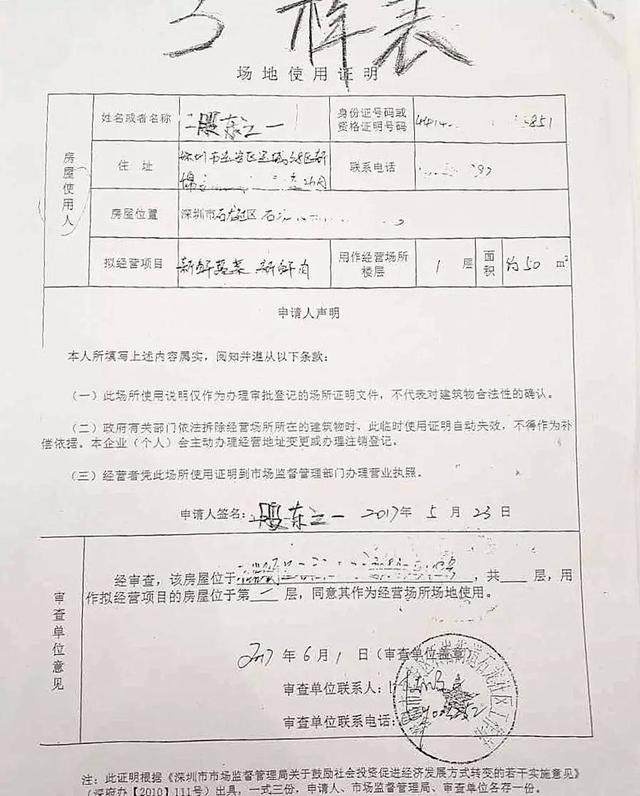 样表
场地使用证明
房屋使用人
姓名或者名称 股东之一 身份证号码或资格证明号码 4414 3851
住址 深圳市 联系电话
房屋位置 深圳市 区
拟经营项目 新鲜蔬菜 新鲜肉 用作经营场所楼层 1 层 面积 约50 m²
申请人声明
本人所填写上述内容属实，阅知并遵从以下条款：
（一）此场所使用说明仅作为办理审批登记的场所证明文件，不代表对建筑物合法性的确认。
（二）政府有关部门依法拆除经营场所所在的建筑物时，此临时使用证明自动失效，不得作为补
偿依据。本企业（个人）会主动办理经营地址变更或办理注销登记。
（三）经营者凭此场所使用证明到市场监督管理部门办理营业执照。
申请人签名：股东之一 2017年 5 月 23 日
审查单位意见
经审查，该房屋位于 ，共 层，用
作拟经营项目的房屋位于第 一 层，同意其作为经营场所场地使用。
2017年 6 月 1 日（审查单位盖章）
审查单位联系人：
审查单位联系电话：
石龙社区工
注：此证明根据《深圳市市场监督管理局关于鼓励社会投资促进经济发展方式转变的若干实施意见》
（深府办【2010】111号）出具，一式三份，申请人、市场监督管理局、审查单位各存一份。